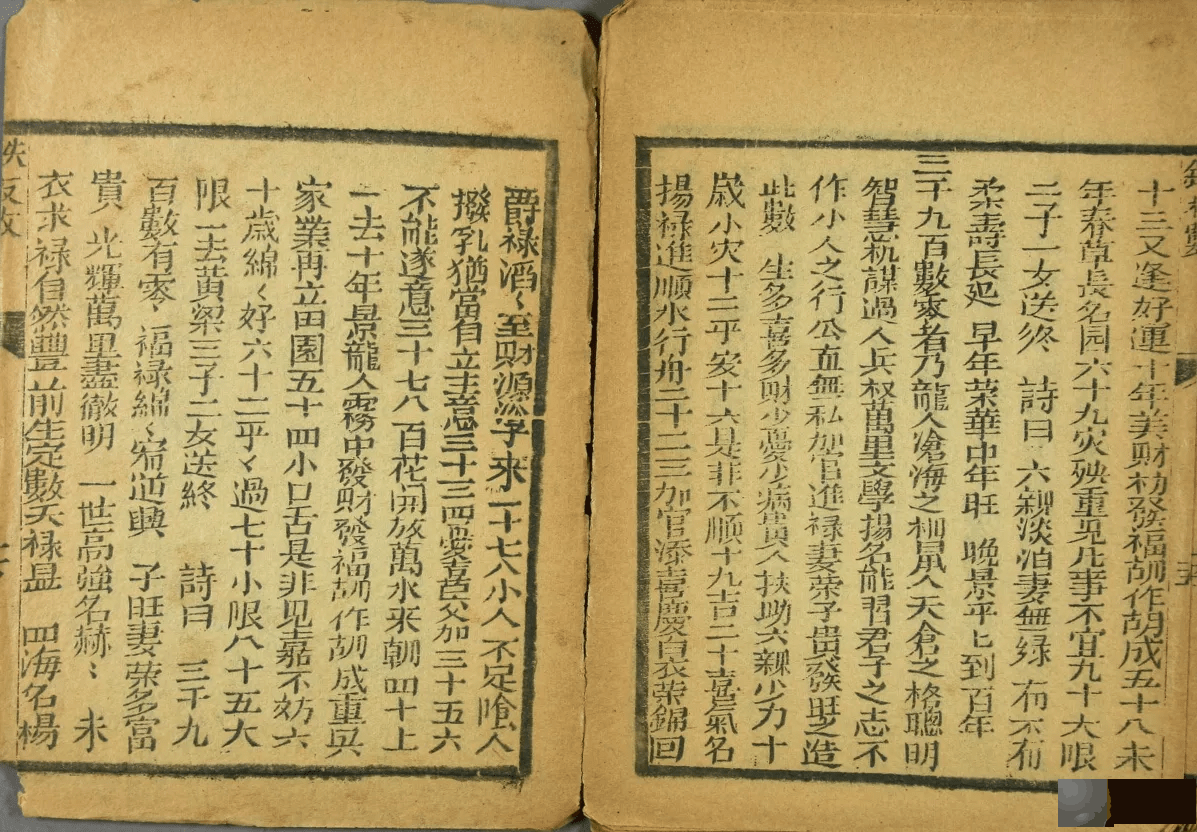 十三又逢好運十年美財初發福胡作胡成五十八未
年春草長名园六十九灾殃重见凡事不宜九十大限
二子一女送终 詩曰 六親淡泊妻無缘 有不有
柔壽長延 早年荣華中年旺 晚景平匕到百年
三千九百數零者乃龍人滄海之相鼠入天倉之格聰明
智慧机謀過人兵权萬里文學揚名能習君子之志不
作小人之行公直無私加官進禄妻荣子贵發旺之造
此數 生多喜多財少憂少病貴人扶助六親少力十
歲小灾十二平安十六是非不順十九吉二十喜氣名
揚禄進順水行舟二十二三加官添喜慶白衣荣錦回
爵禄滔〻至財源 字來二十七八小人不足陰人
撥乱犹當自立主意三十三四要喜笑加三十五六
不能遂意三十七八百花開放萬水來朝四十上
一去十年景龍人霧中發財發福胡作胡成重兴
家業再立田園五十四小口舌是非见嘉不妨六
十歲綿〻好六十二平〻過七十小限八十五大
限一去黄梁三子二女送終 詩曰 三千九
百數有零〻福禄綿〻宛道興 子旺妻荣多富
貴 光輝萬里盡徹明 一世高強名赫〻 未
衣求禄自然豐 前生定數天禄显 四海名楊